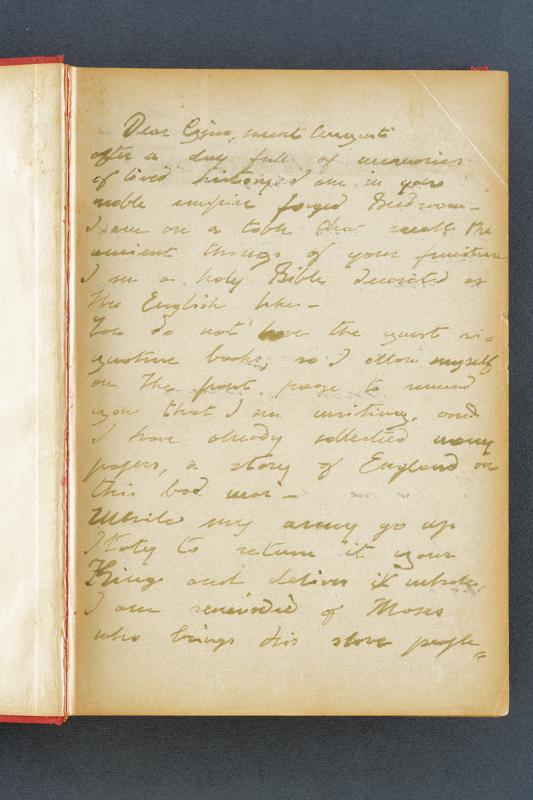 Dear
after a day full of memories
of lived history I am in your
noble empire forged Bedroom -
I am on a table that recalls the
ancient things of your furniture
I see a holy Bible decorated as
the English like -
You do not have the guest
book, so I allow myself
on the front page to
you that I am writing, and
I have already collected many
papers, a story of England on
this bad war -
While my army go up
Italy to return it your
King and deliver it whole,
I am reminded of Moses
who brings his slave people